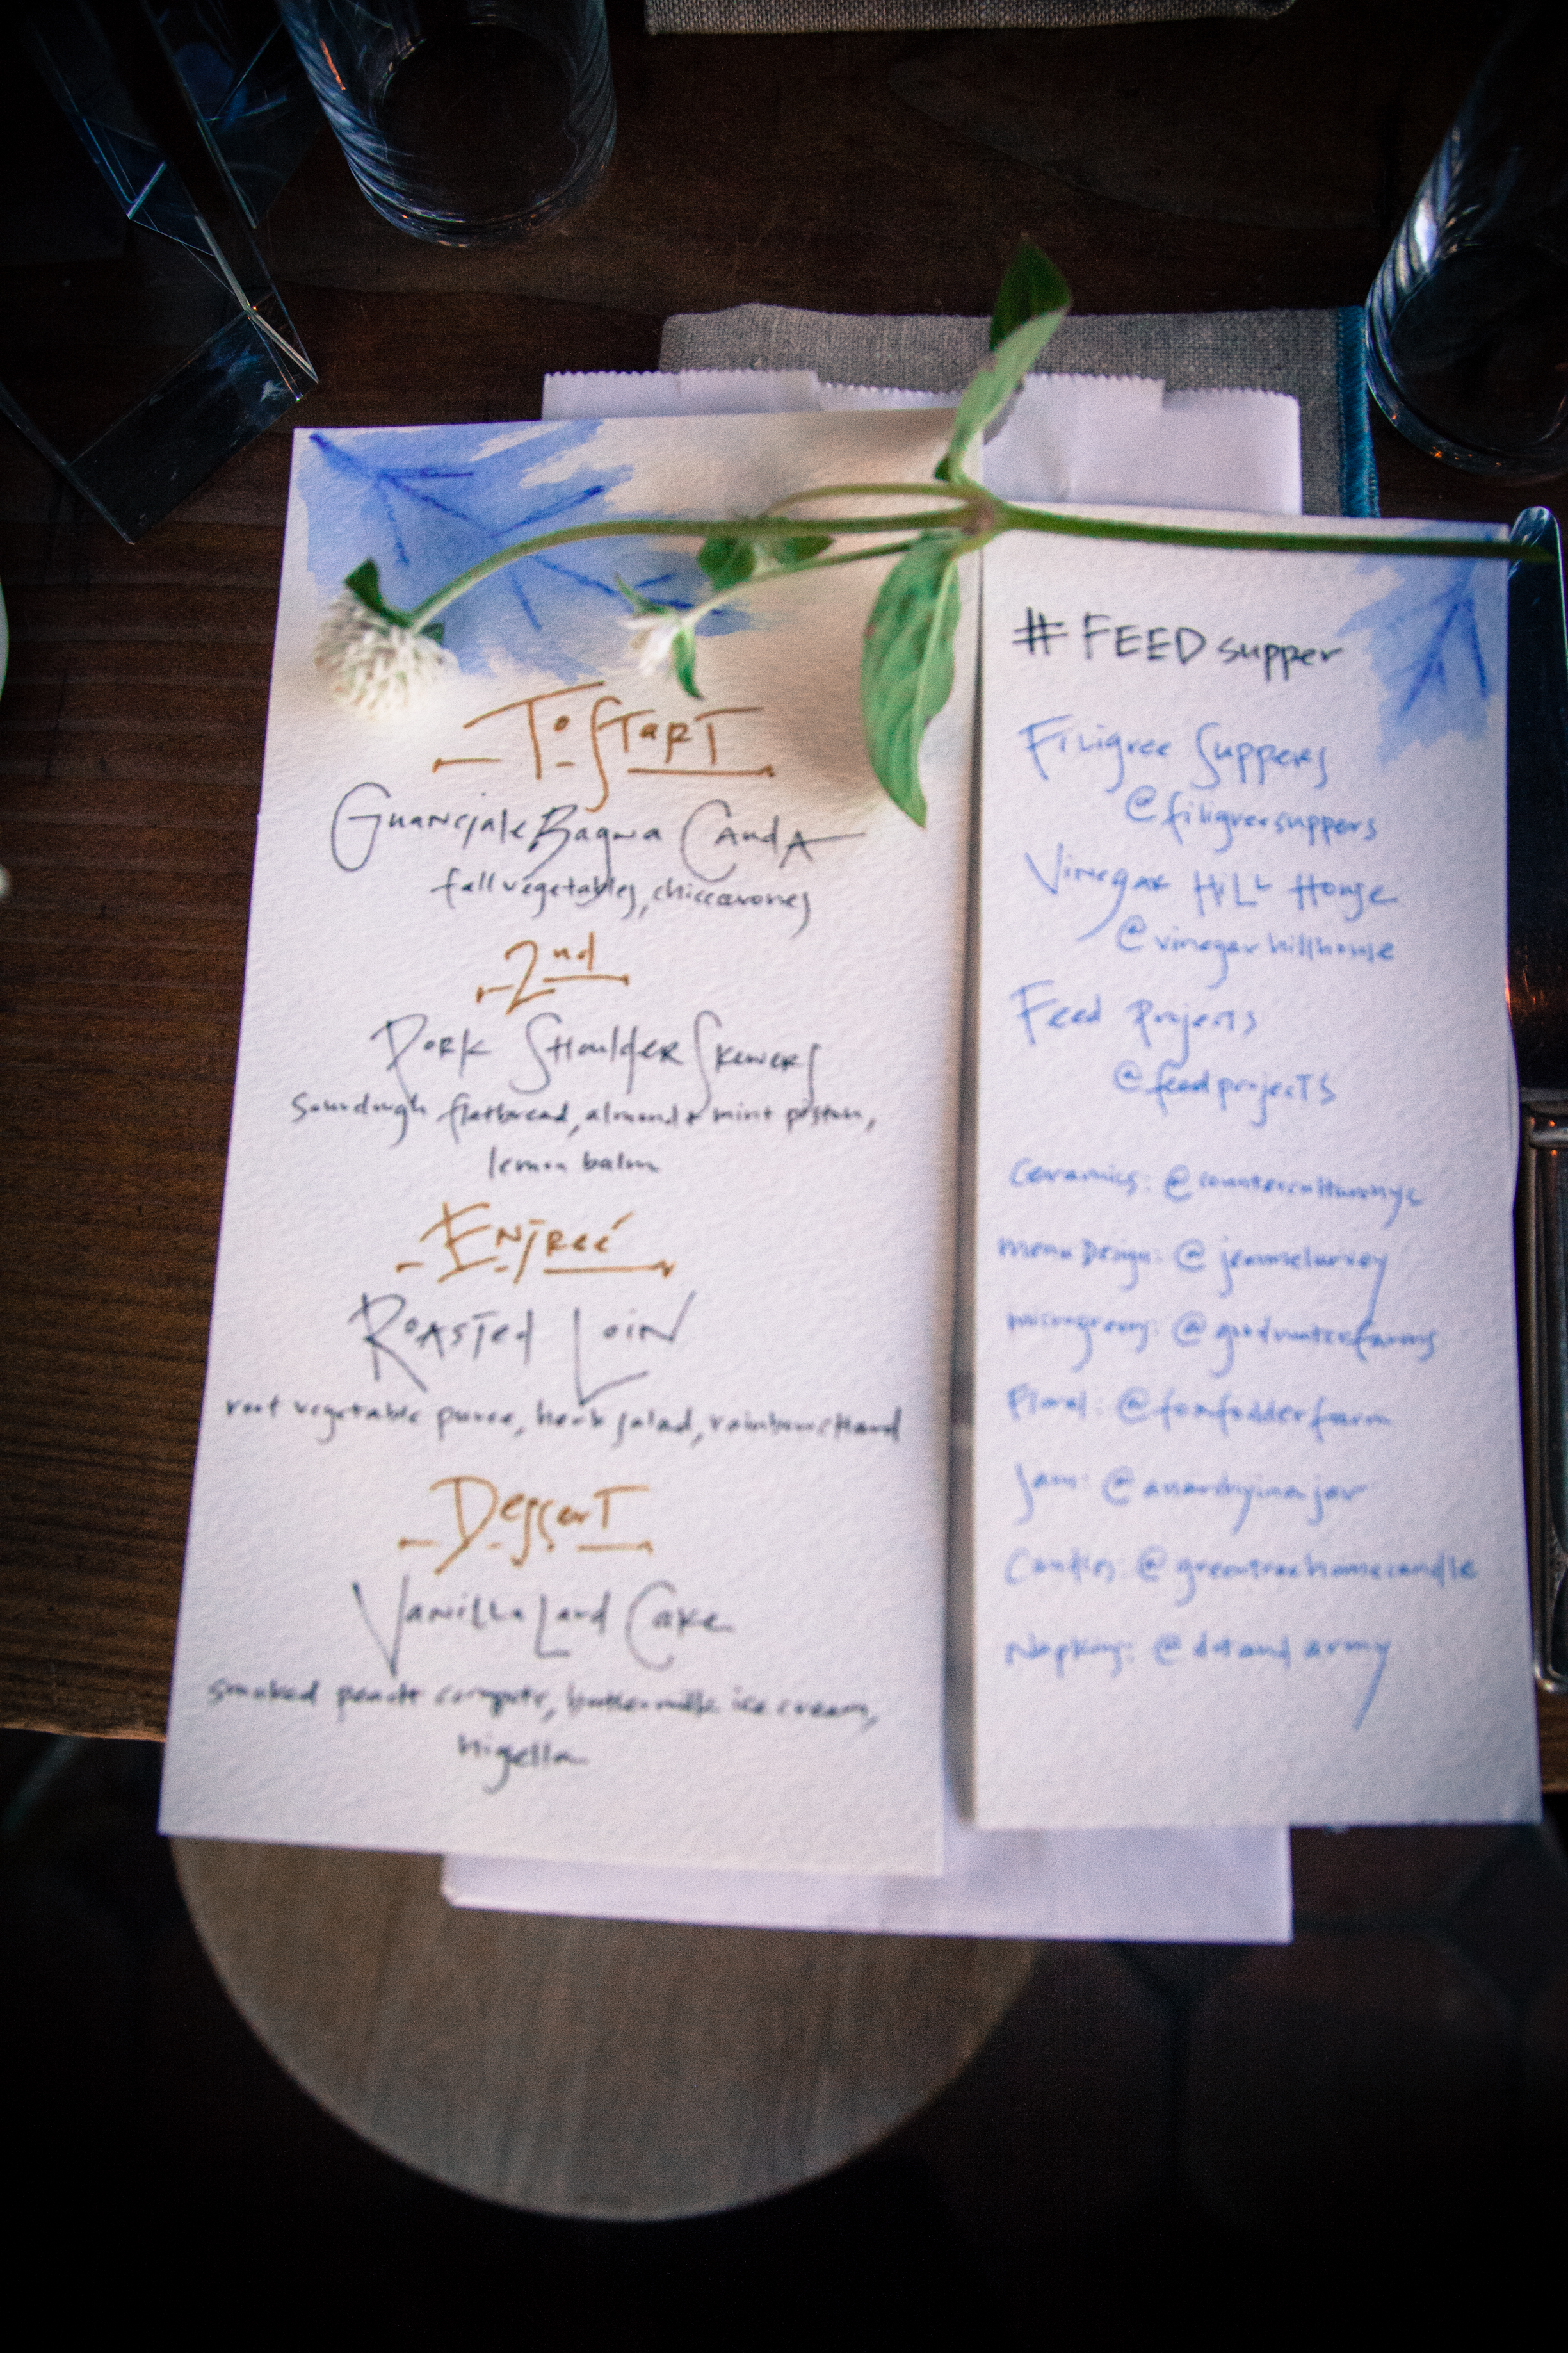 To Start
Guanciale Bagna Cauda
fall vegetables, chiccarones
2nd
Pork Shoulder Skewers
Sourdough flatbread, almond & mint pistou,
lemon balm
Entreé
Roasted Loin
root vegetable puree, herb salad, rainbow chard
Dessert
Vanilla Lard Cake
smoked peach compote, buttermilk ice cream,
nigella
#FEEDsupper
Filigree Suppers
@filigreesuppers
Vinegar Hill House
@vinegarhillhouse
Feed Projects
@feedprojects
Ceramics: @counterculturenyc
Menu Design:
microgreens: @goodwaterfarms
Floral: @foxfodderfarm
Jam: @anarchyinajar
Candles: @greentreehomecandle
Napkins: @dotandarmy